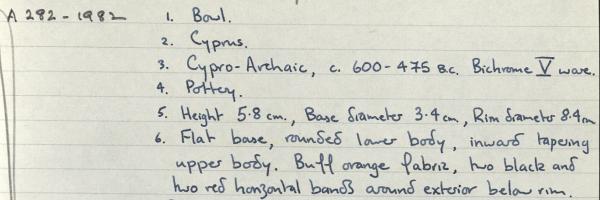 A 282 - 1982 1. Bowl.
2. Cyprus.
3. Cypro-Archaic, c. 600-475 B.C. Bichrome V ware.
4. Pottery.
5. Height 5.8 cm., Base diameter 3.4 cm, Rim diameter 8.4 cm
6. Flat base, rounded lower body, inward tapering
upper body. Buff orange fabric, two black and
two red horizontal bands around exterior below rim.